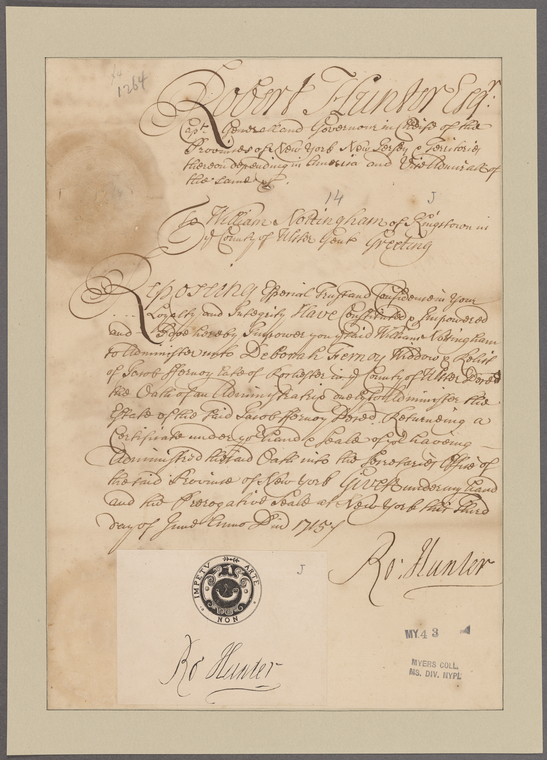 1264
Robert Hunter Esqr.
Capt. Generall and Governour in Cheife of the
Provinces of New York New Jersey & Territories
thereon depending in America and Vice Admirall of
the same &c.
14 J
To William Nottingham of Kingstown in
ye County of Ulster Gent. Greeting
Reposing Especial Trust and Confidence in Your
Loyalty and Integrity Have Constituted & Impowered
and I Doe hereby Impower you ye said William Nottingham
to Administer unto Deborah Fernoy Widdow & Relict
of Jacob Fernoy late of Rochester in ye County of Ulster
the Oath of an Administratrix duely to Administer the
Estate of the said Jacob Fernoy Returning a
Certificate under yor hand & Seale of yor haveing
Administred the said Oath into the Secretaries Office of
the said Province of New York Given under my hand
and the Prerogative Seale at New York this Third
day of June Anno Dni 1715
Ro: Hunter
J
IMPETU ARTE
NON
Ro Hunter
MY. 43
MYERS COLL.
MS. DIV. NYPL